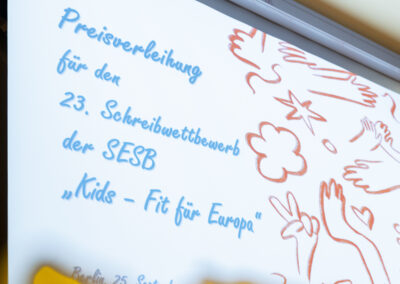 Preisverleihung
für den
23. Schreibwettbewerb
der SESB
„Kids – Fit für Europa“
Berlin, 25.